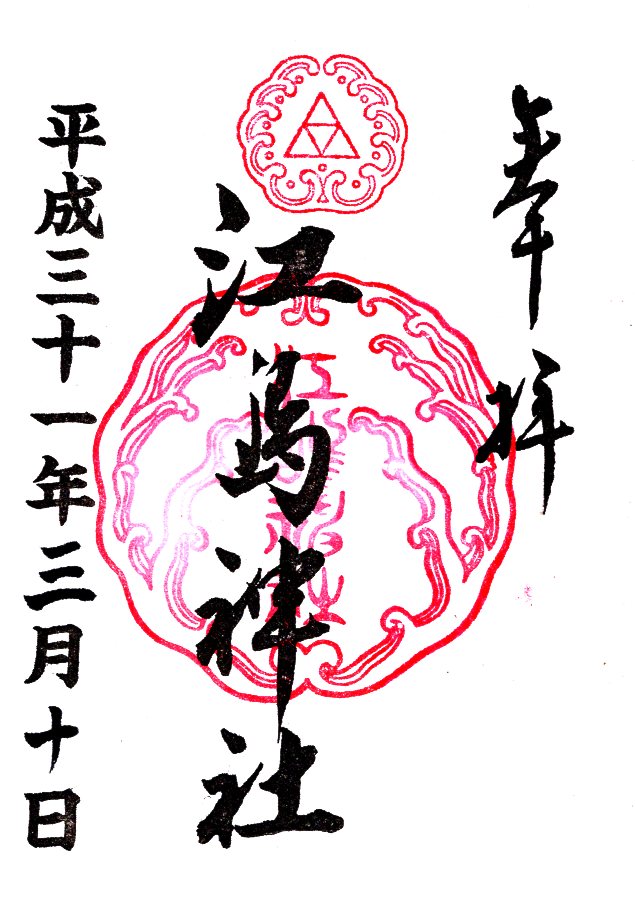 奉拝
江島神社
平成三十一年三月十日